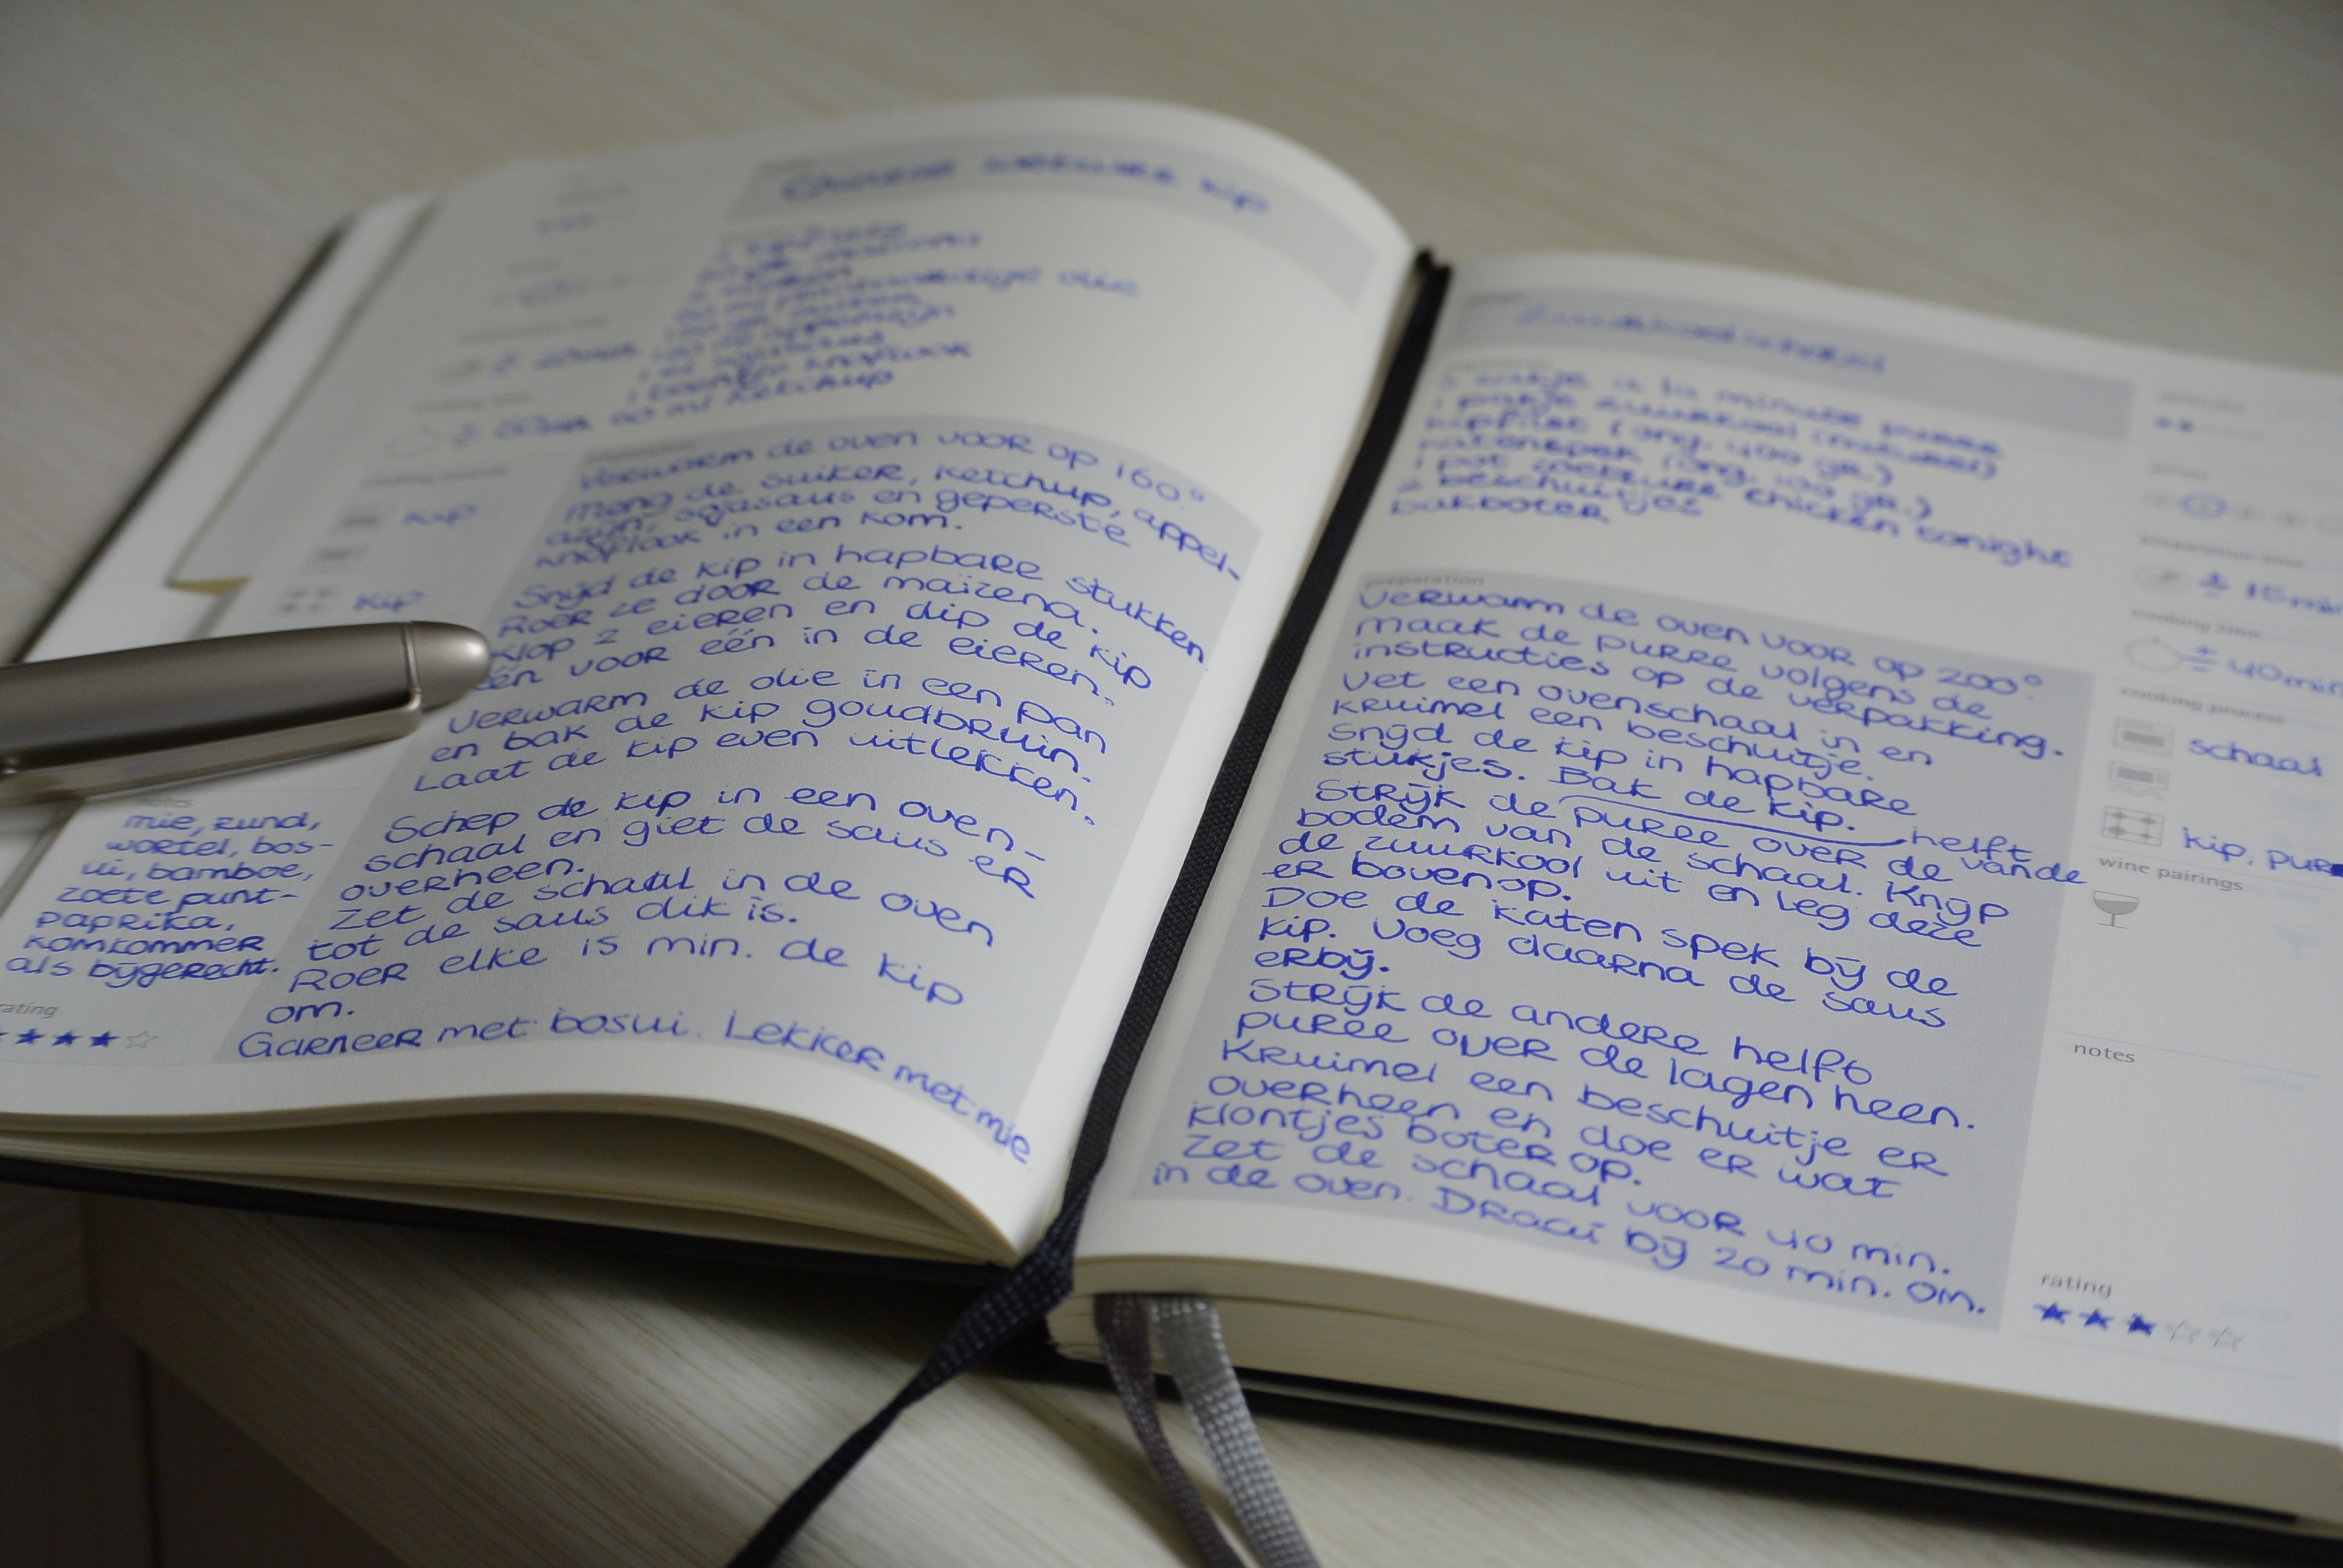 Chinese kip
olie
1 teentje knoflook
50 ml ketchup
Verwarm de oven voor op 160°
Meng de suiker, ketchup, appel-
azijn, sojasaus en geperste
knoflook in een kom.
Snijd de kip in hapbare stukken
Roer ze door de maïzena.
Klop 2 eieren en dip de kip
één voor één in de eieren.
Verwarm de olie in een pan
en bak de kip goudbruin.
Laat de kip even uitlekken.
Schep de kip in een oven-
schaal en giet de saus er
overheen.
Zet de schaal in de oven
tot de saus dik is.
Roer elke 15 min. de kip
om.
Garneer met bosui. Lekker met mie
Kip
Kip
notes
mie, rund,
wortel, bos-
ui, bamboe,
zoete punt-
paprika,
komkommer
als bijgerecht.
rating
Zuurkoolschotel
zakje à la minute puree
1 pakje zuurkool (naturel)
kipfilet (ong. 400 gr.)
katenspek (ong. 100 gr.)
1 pot chicken tonight
2 beschuitjes
bakboter
preparation
Verwarm de oven voor op 200°
Maak de puree volgens de
instructies op de verpakking.
Vet een ovenschaal in en
kruimel een beschuitje.
Snijd de kip in hapbare
stukjes. Bak de kip.
Strijk de puree over de helft vande
bodem van de schaal. Knijp
de zuurkool uit en leg deze
er bovenop.
Doe de katen spek bij de
kip. Voeg daarna de saus
erbij.
Strijk de andere helft
puree over de lagen heen.
Kruimel een beschuitje er
overheen en doe er wat
klontjes boter op.
Zet de schaal voor 40 min.
in de oven. Draai bij 20 min. om.
preparation time
± 15 min
cooking time
± 40 min
cooking process
schaal
kip, pur
wine pairings
notes
rating